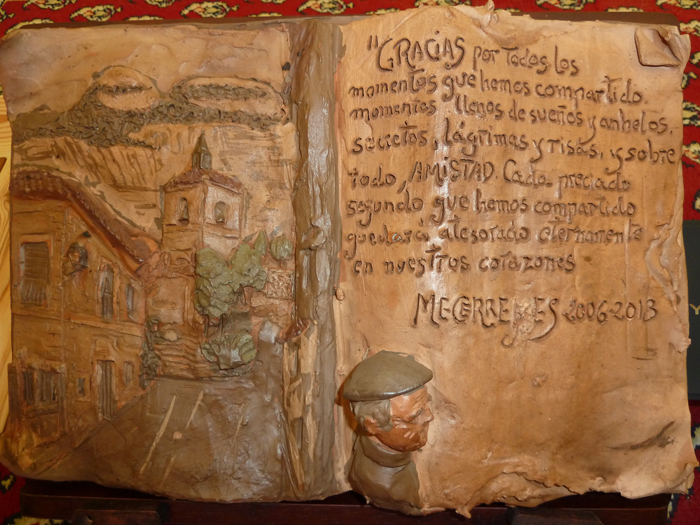 "GRACIAS por todos los
momentos que hemos compartido
momentos llenos de sueños y anhelos,
secretos, lágrimas y risas, y sobre
todo, AMISTAD. Cada preciado
segundo que hemos compartido
quedará atesorado eternamente
en nuestros corazones
MECERREYES 2006-2013